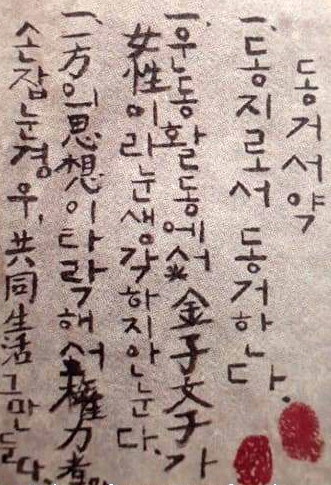 동거서약
一, 동지로서 동거한다.
一, 운동활동에서 金子文子가
女性이라는 생각하지안는다.
一, 一方의 思想이 타락해서 權力者와
손잡는 경우, 共同生活 그만둔다.